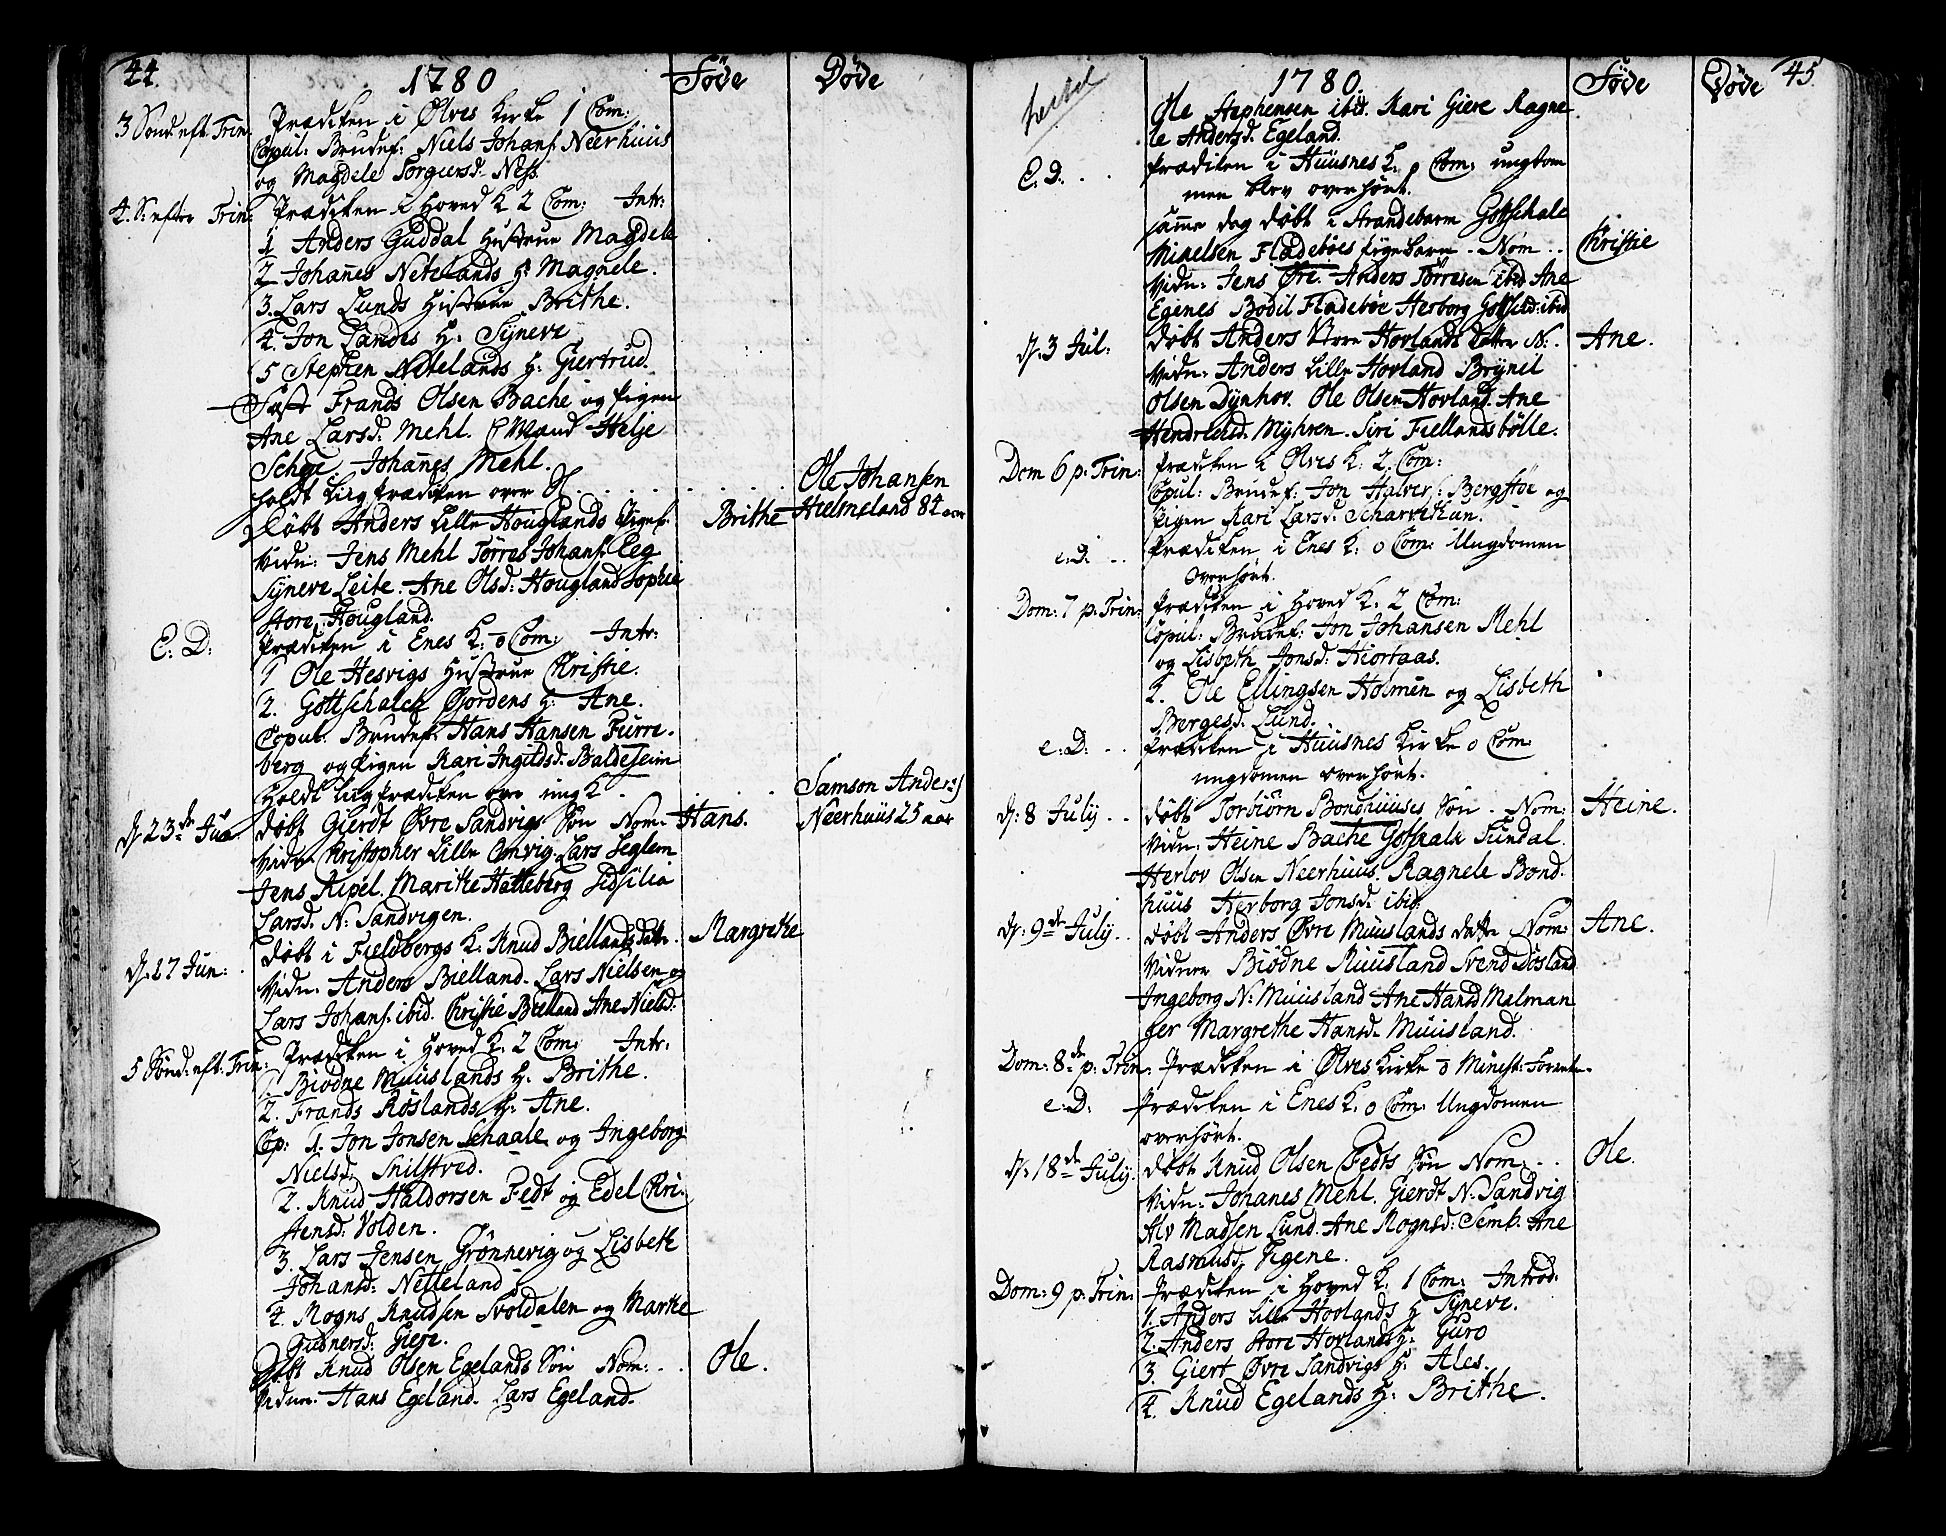 44.
1780
Føde
Døde
3 Sønd: eft. Trin:
Prædiken i Ølves Kirke 1 Com:
Copul: Brudef: Niels Johans: Neerhuus
og Magdele Torgiersd. Ness.
4. S: efter Trin:
Prædiken i Hoved K 2 Com: Intr:
1 Anders Guddal Hustrue Magdele
2 Johanes Netelands H: Magnele.
3. Lars Lunds Hustrue Brithe.
4. Jon Sandes H: Syneve
5 Stephen Netelands H: Giertrud.
Fæst Frands Olsen Bache og Pigen
Ane Larsd. Mehl. C Mænd Helje
Johanes Mehl.
holdt Liigprædiken over
Ole Johansen
Hielmeland 84 aar
Døbt Anders Lille Houglands Pigeb:
Brithe
Vidn: Jens Mehl Tørres Johans: Eeg
Syneve Leite. Ane Olsd: Hougland Sophie
store Hougland.
E: D:
Prædiken i Enes K: 0 Com: Intr:
1 Ole Hesvigs Hustrue Christie.
2. Gottschalck Gjordens H: Ane.
Copul: Brudef: Hans Hansen Furre-
berg og Pigen Kari Ingildsd. Baldesheim
Holdt Liigprædiken over ung K
Samson Anders:
Neerhuus 25 aar
D: 23de Jun
Døbt Gierdt Øvre Sandvigs Søn Nom:
Hans.
Vidn: Christopher Lille Omvig. Lars Seglem
Jens Ripel. Marithe Hatteberg Sidsilia
Larsd. N: Sandvigen.
D: 27 Jun:
Døbt i Fieldbergs K: Knud Biellands Datt:
Margrethe
Vidn: Anders Bielland. Lars Nielsen og
Lars Johans. ibid. Christie Bielland Ane Nielsd.
5 Sønd: eft. Trin:
Prædiken i Hoved K: 2 Com: Intr:
1 Biødne Muuslands H: Brithe.
2. Frands Røslands H: Ane.
Cop: 1. Jon Jonsen Schaale og Ingeborg
Nielsd: Snilstved.
2. Knud Haldorsen Fedt og Edel Chri-
stensd: Volden.
3. Lars Jensen Grønnevig og Lisbeth
Johansd: Netteland
4 Mogns Knudsen Svoldalen og Marthe
Gunnersd: Giere.
Døbt Knud Olsen Egelands Søn Nom:
Ole.
Vidne: Hans Egeland. Lars Egeland.
45.
1780.
Føde
Døde
Ole Stephensen ibid. Kari Giere Ragne
le Andersd. Egeland.
E: D:
Prædiken i Huusnes K: 0 Com: ungdom
men blev overhørt.
samme dag døbt i Strandebarm Gotschalc
Mikelsen Fladebøes Pigebarn. Nom
Christie
Vidn: Jens Øre. Anders Tørresen ibid Ane
Egenes Bodil Fladebøe Herborg Gotschd: ibid
D: 3 Jul:
døbt Anders Store Hovlands Datter N:
Ane.
Vidn: Anders Lille Hovland Brynil
Olsen Dynhov. Ole Olsen Hovland. Ane
Hendrichsd. Myhren. Siri Fiellandsbølle.
Dom 6 p: Trin:
Prædiken i Ølves K: 2 Com:
Copul: Brudef: Jon Halvers: Bergstøe og
Pigen Kari Larsd. Scharvehun.
e: D:
Prædiken i Enes K: 0 Com: Ungdomen
Overhørt.
Dom: 7 p: Trin:
Prædiken i Hoved K: 2 Com:
Copul: Brudef: Jon Johansen Mehl
og Lisbeth Jonsd: Hiortaas.
2. Ole Ellingsen Holmen og Lisbeth
Bergesd. Lund.
e: D:
Prædiken i Huusnes Kirke 0 Com:
ungdomen overhørt.
D: 8 July
døbt Torbiørn Bondhuuses Søn. Nom:
Heine.
Vidn: Heine Bache Gotskalk Sundal.
Herlov Olsen Neerhuus. Ragnele Bond-
huus Herborg Jonsd: ibid:
D: 9de July
døbt Anders Øvre Muuslands datter Nom:
Ane.
Vidner Biødne Muusland Svend Døsland
Ingeborg N: Muusland Ane Hansd Malman
ger Margrethe Hansd. Muusland.
Dom: 8de p: Trin:
Prædiken i Ølves Kirke 0 Minist: Forrett:
e: D:
Prædiken i Enes K: 0 Com: Ungdomen
overhørt.
D: 18de July.
døbt Knud Olsen Fedts Søn Nom:
Ole.
Vidn: Johanes Mehl. Gierdt N: Sandvig
Alv Madsen Lund. Ane Mognsd: Semb. Ane
Rasmusd. Tigene.
Dom: 9 p: Trin:
Prædiken i Hoved K: 1 Com: Introd:
1. Anders Lille Hovlands H Syneve.
2. Anders Store Hovlands H: Guro
3. Giert Øvre Sandvigs H: Ales.
4. Knud Egelands H: Brithe.